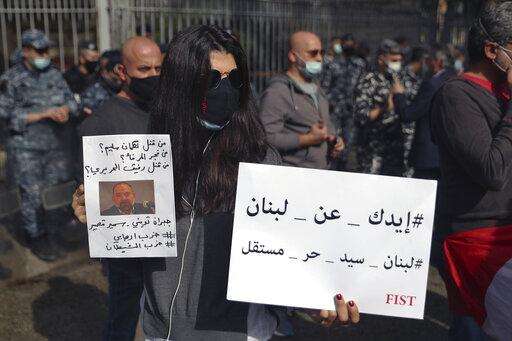 من قتل لقمان سليم؟
من فجر المرفأ؟
من قتل رفيق الحريري؟
جبران تويني _ سمير قصير
# حزب ارهابي
# حزب الشيطان
#إيدك _ عن _ لبنان
#لبنان _ سيد _ حر _ مستقل
FIST